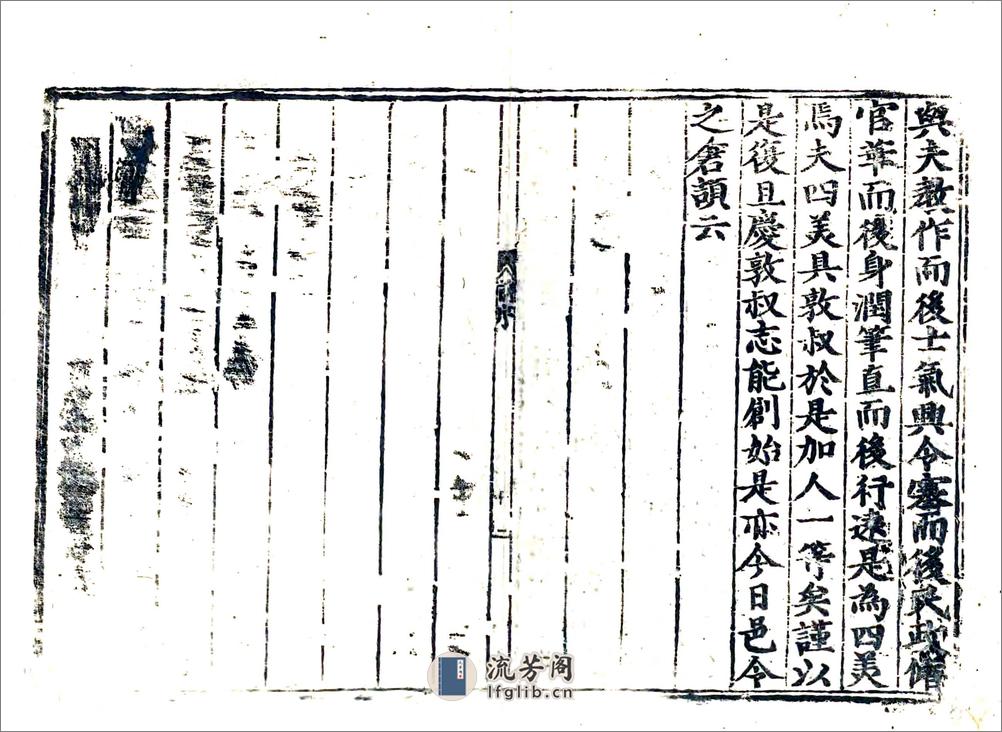 與夫教作而後士氣興令審而後民政脩
官華而後身潤筆直而後行遠是為四美
焉夫四美具敦叔於是加人一等矣謹以
是復且慶敦叔志能創始是亦今日邑令
之倉頡云
序
二
流芳阁
lfglib.cn